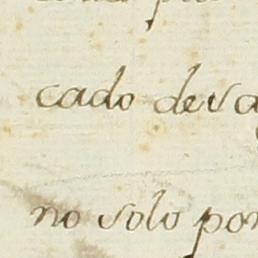 cado de va
no solo por